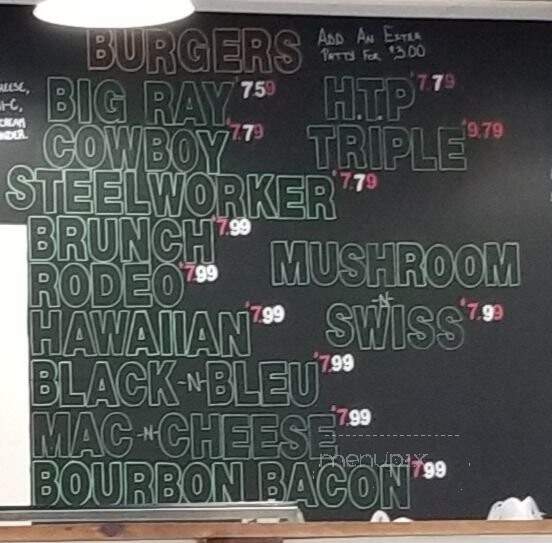 BURGERS
ADD AN EXTRA
PATTY FOR $3.00
BIG RAY $7.59
H.T.P $7.79
COWBOY $7.79
TRIPLE $9.79
STEELWORKER $7.79
BRUNCH $7.99
RODEO $7.99
MUSHROOM
-N-
SWISS $7.99
HAWAIIAN $7.99
BLACK-N-BLEU $7.99
MAC-N-CHEESE $7.99
BOURBON BACON $7.99
menupix